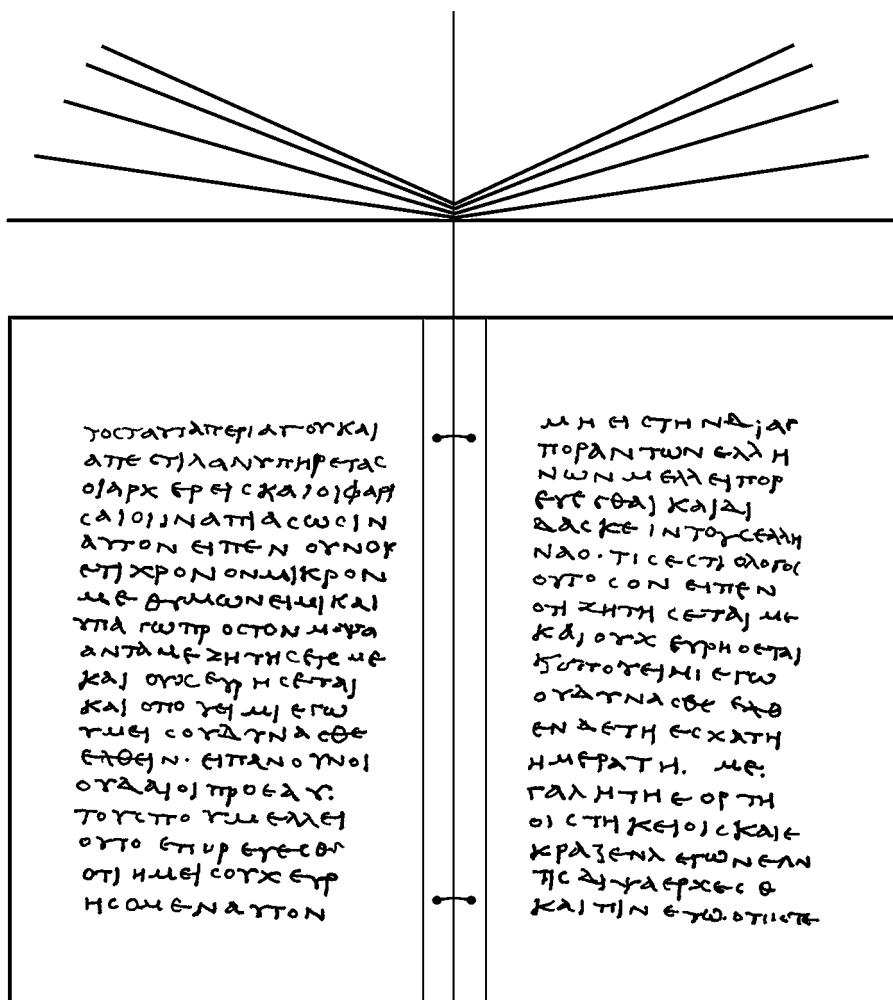 ΤΟCΤΑΥΤΑΠΕΡΙ ΑΤΟΥ ΚΑΙ
ΑΠΕ CΤΙΛΑΝΥΠΗΡΕΤΑC
ΟΙΑΡΧ ΕΡΕΙ CΚΑΙΟΙΦΑΡΙ
CΑΙΟΙΙΝΑΠΙΑCΩCΙΝ
ΑΥΤΟΝ ΕΙΠΕΝ ΟΥΝΟΥ
ΕΤΙ ΧΡΟΝΟΝΜΙΚΡΟΝ
ΜΕ ΘΥΜΩΝΕΙΜΙ ΚΑΙ
ΥΠΑ ΓΩΠΡ ΟCΤΟΝ
ΑΝΤΑΜΕ ΖΗΤΗCΕΤΕ ΜΕ
ΚΑΙ ΟΥΟC ΕΥΡ ΗCΕΤΑΙ
ΚΑΙ ΟΠΟ ΥΕΙ ΜΙ ΕΓΩ
ΥΜΕΙ CΟΥΔΥΝΑ CΘΕ
ΕΛΘΕΙΝ· ΕΙΠΑΝ ΟΥΝΟΙ
ΟΥΔΑΙΟΙ ΠΡΟΕΑΥ.
ΤΟΥCΠΟ ΥΜΕΛΛΕΙ
ΟΥΤΟ ΕΠΟΡ ΕΥΕCΘ
ΟΤΙ ΗΜΕΙ CΟΥΧ ΕΥΡ
ΗCΟΜΕΝΑΥΤΟΝ
ΜΗ ΕΙ CΤΗ ΝΔΙΑC
ΠΟΡΑΝ ΤΩΝ ΕΛΛ Η
ΝΩΝ ΜΕΛΛΕΙΠΟΡ
ΕΥΕ CΘΑΙ ΚΑΙΔΙ
ΔΑCΚΕ ΙΝΤΟΥCΕΛΛΗ
ΝΑΟ· ΤΙCΕCΤΙ ΟΛΟΓΟC
ΟΥΤΟ CΟΝ ΕΙΠΕΝ
ΟΤΙ ΖΗΤΗ CΕΤΑΙ ΜΕ
ΚΑΙ ΟΥΧ ΕΥΡΗΟΕΤΑΙ
ΚΟΠΟΥΕΙΜΙ ΕΓΩ
ΟΥΔΥΝΑCΘΕ ΕΛΘ
ΕΝ ΔΕΤΗ ΕCΧΑΤΗ
ΗΜΕΡΑΤΗ. ΜΕ.
ΓΑΛΗ ΤΗ ΕΟΡΤΗ
ΟΙ CΤΗ ΚΕΙΟΙCΚΑΙΕ
ΚΡΑΖΕΝΛ ΕΓΩΝ ΕΛΝ
ΤΙC ΔΙΨΑΕΡΧΕC Θ
ΚΑΙ ΠΙΝ ΕΤΩ·ΟΠΙCΤΕ